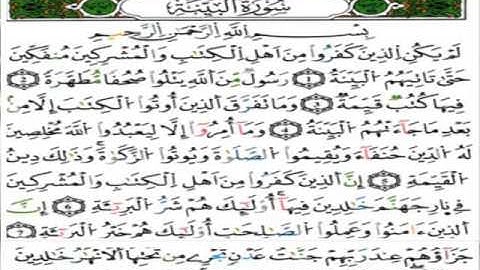 سورة البينة
بسم الله الرحمن الرحيم
لم يكن الذين كفروا من أهل الكتاب والمشركين منفكين
حتى تأتيهم البينة ١ رسول من الله يتلوا صحفا مطهرة ٢
فيها كتب قيمة ٣ وما تفرق الذين أوتوا الكتاب إلا من
بعد ما جاءتهم البينة ٤ وما أمروا إلا ليعبدوا الله مخلصين
له الدين حنفاء ويقيموا الصلوة ويؤتوا الزكوة وذلك دين
القيمة ٥ إن الذين كفروا من أهل الكتاب والمشركين
في نار جهنم خالدين فيها أولئك هم شر البرية ٦ إن
الذين ءامنوا وعملوا الصالحات أولئك هم خير البرية ٧
جزاؤهم عند ربهم جنات عدن تجري من تحتها الأنهر خالدين